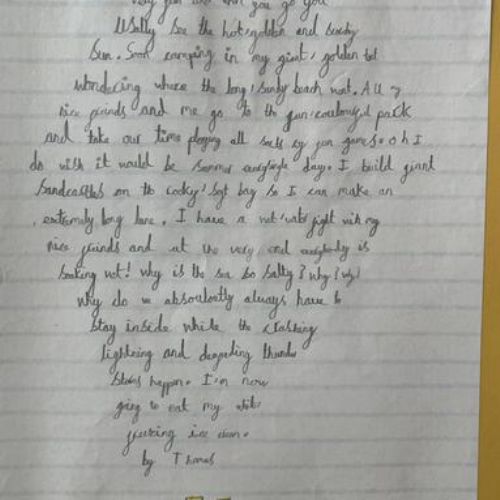 very fun and when you go you
Usally see the hot, golden and beauty
Sun. Soon camping in my giant, golden tent
wondering where the long, sandy beach went. All my
nice freinds and me go to the fun, park
and take our time playing all sorts of fun games. oh I
do wish it would be Summer day. I build giant
Sandcastles on the bay so I can make an
extremely long lane. I have a fight with my
nice freinds and at the very end everybody is
Soaking wet! why is the sea so salty? why? why?
why do we absoulootly always have to
Stay inside while the clashing
lightning and thunder
Storms happen. I'm now
going to eat my white,
freezing ice cream.
by Thomas